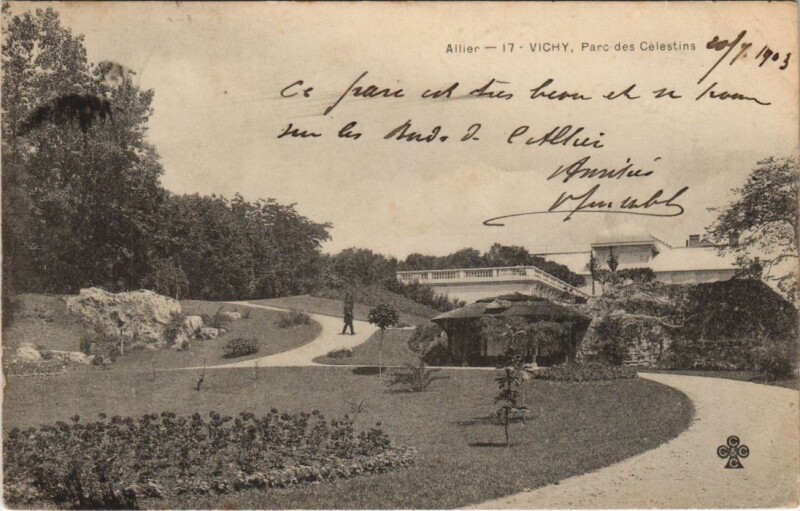 Allier — 17 - VICHY, Parc des Célestins
20/7 1903
Ce parc est très beau et se trouve
sur les Bords de l'Allier
Amitiés
CCCC